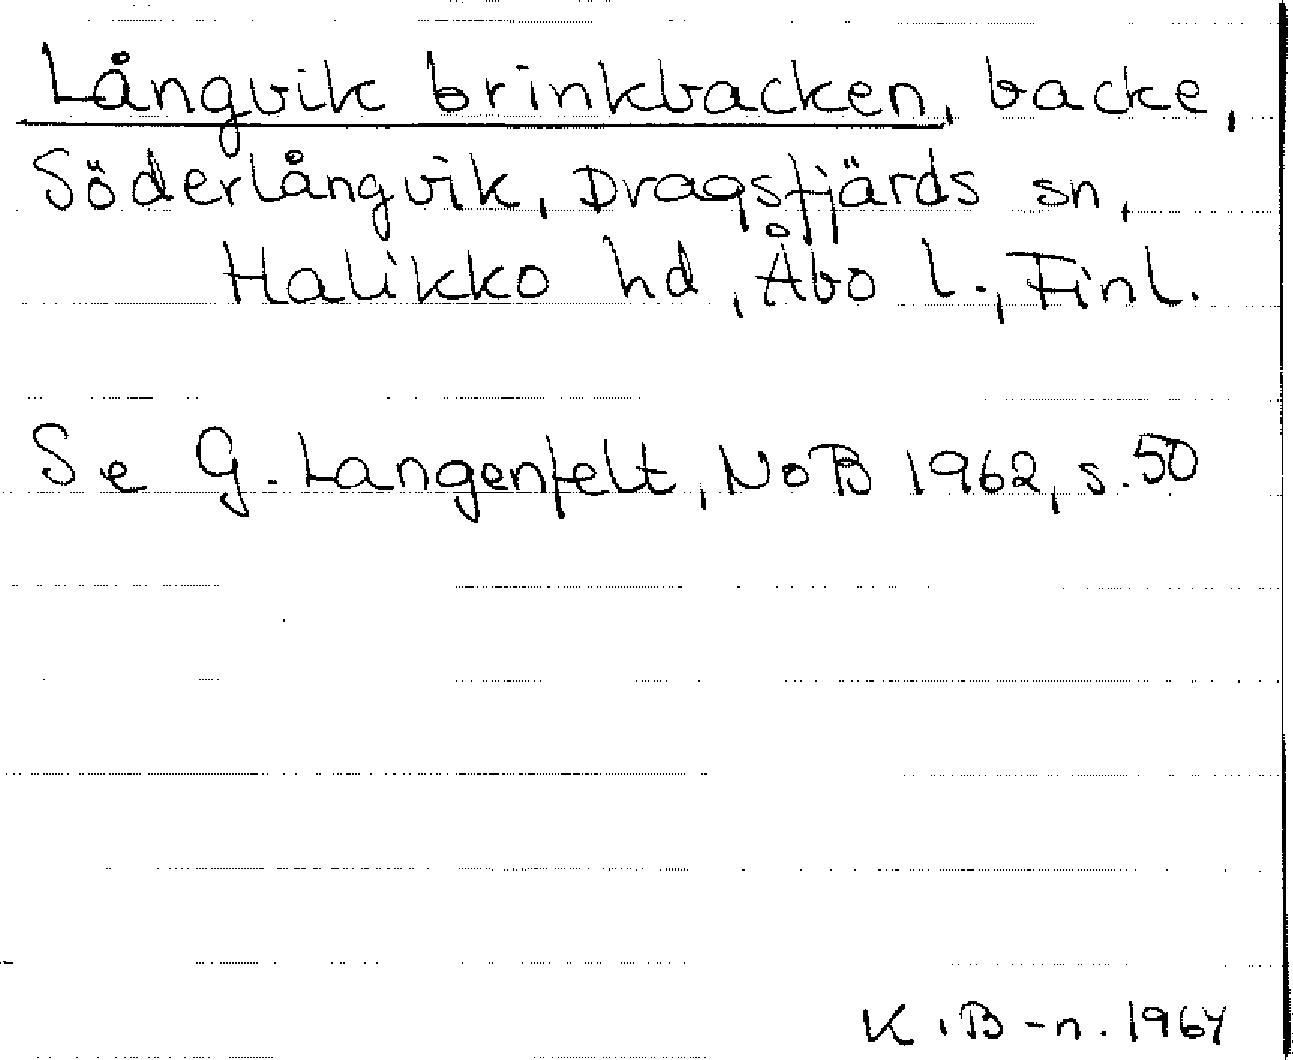 Långvik brinkbacken, backe,
Söderlångvik, Dragsfjärds sn,
Halikko hd, Åbo l., Finl.
Se G. Langenfelt, NoB 1962, s. 50
K. B-n. 1964